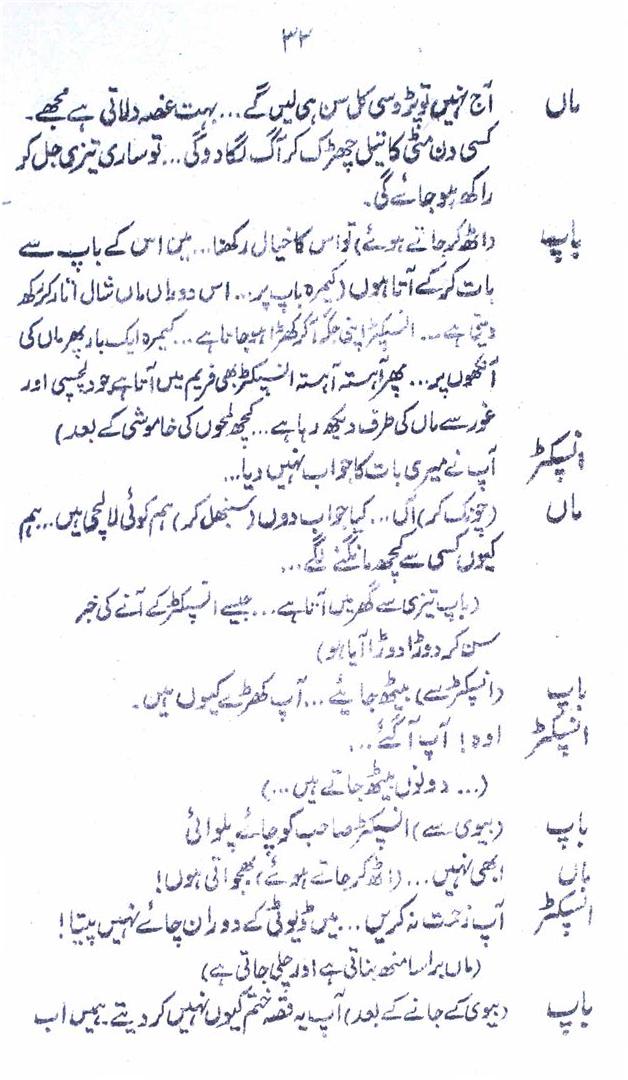 ۳۲
ماں آج نہیں تو پڑوسی کل سن ہی لیں گے... بہت غصہ دلاتی ہے مجھے۔
کسی دن مٹی کا تیل چھڑک کر آگ لگا دوگی... تو ساری تیزی جل کر
راکھ ہو جائے گی۔
باپ (اٹھ کر جاتے ہوئے) تو اس کا خیال رکھنا... میں اس کے باپ سے
بات کر کے آتا ہوں (کیمرہ باپ پر... اس دوران ماں شال اتار کر رکھ
دیتی ہے... انسپکٹر اپنی جگہ آ کر کھڑا ہو جاتا ہے... کیمرہ ایک بار پھر ماں کی
آنکھوں پر... پھر آہستہ آہستہ انسپکٹر بھی فریم میں آتا ہے جو دلچسپی اور
غور سے ماں کی طرف دیکھ رہا ہے... کچھ لمحوں کی خاموشی کے بعد)
انسپکٹر آپ نے میری بات کا جواب نہیں دیا...
ماں (چونک کر) اں... کیا جواب دوں (سنبھل کر) ہم کوئی لالچی ہیں... ہم
کیوں کسی سے کچھ مانگنے لگے...
(باپ تیزی سے گھر میں آتا ہے... جیسے انسپکٹر کے آنے کی خبر
سن کر دوڑا دوڑا آیا ہو)
باپ (انسپکٹر سے) بیٹھ جایئے... آپ کھڑے کیوں ہیں۔
انسپکٹر اوہ! آپ آ گئے...
(... دونوں بیٹھ جاتے ہیں...)
باپ (بیوی سے) انسپکٹر صاحب کو چائے پلوائی
ماں ابھی نہیں... (اٹھ کر جاتے ہوئے) بھجواتی ہوں!
انسپکٹر آپ زحمت نہ کریں... میں ڈیوٹی کے دوران چائے نہیں پیتا!
(ماں برا سا منھ بناتی ہے اور چلی جاتی ہے)
باپ (بیوی کے جانے کے بعد) آپ یہ قصّہ ختم کیوں نہیں کر دیتے۔ ہمیں اب